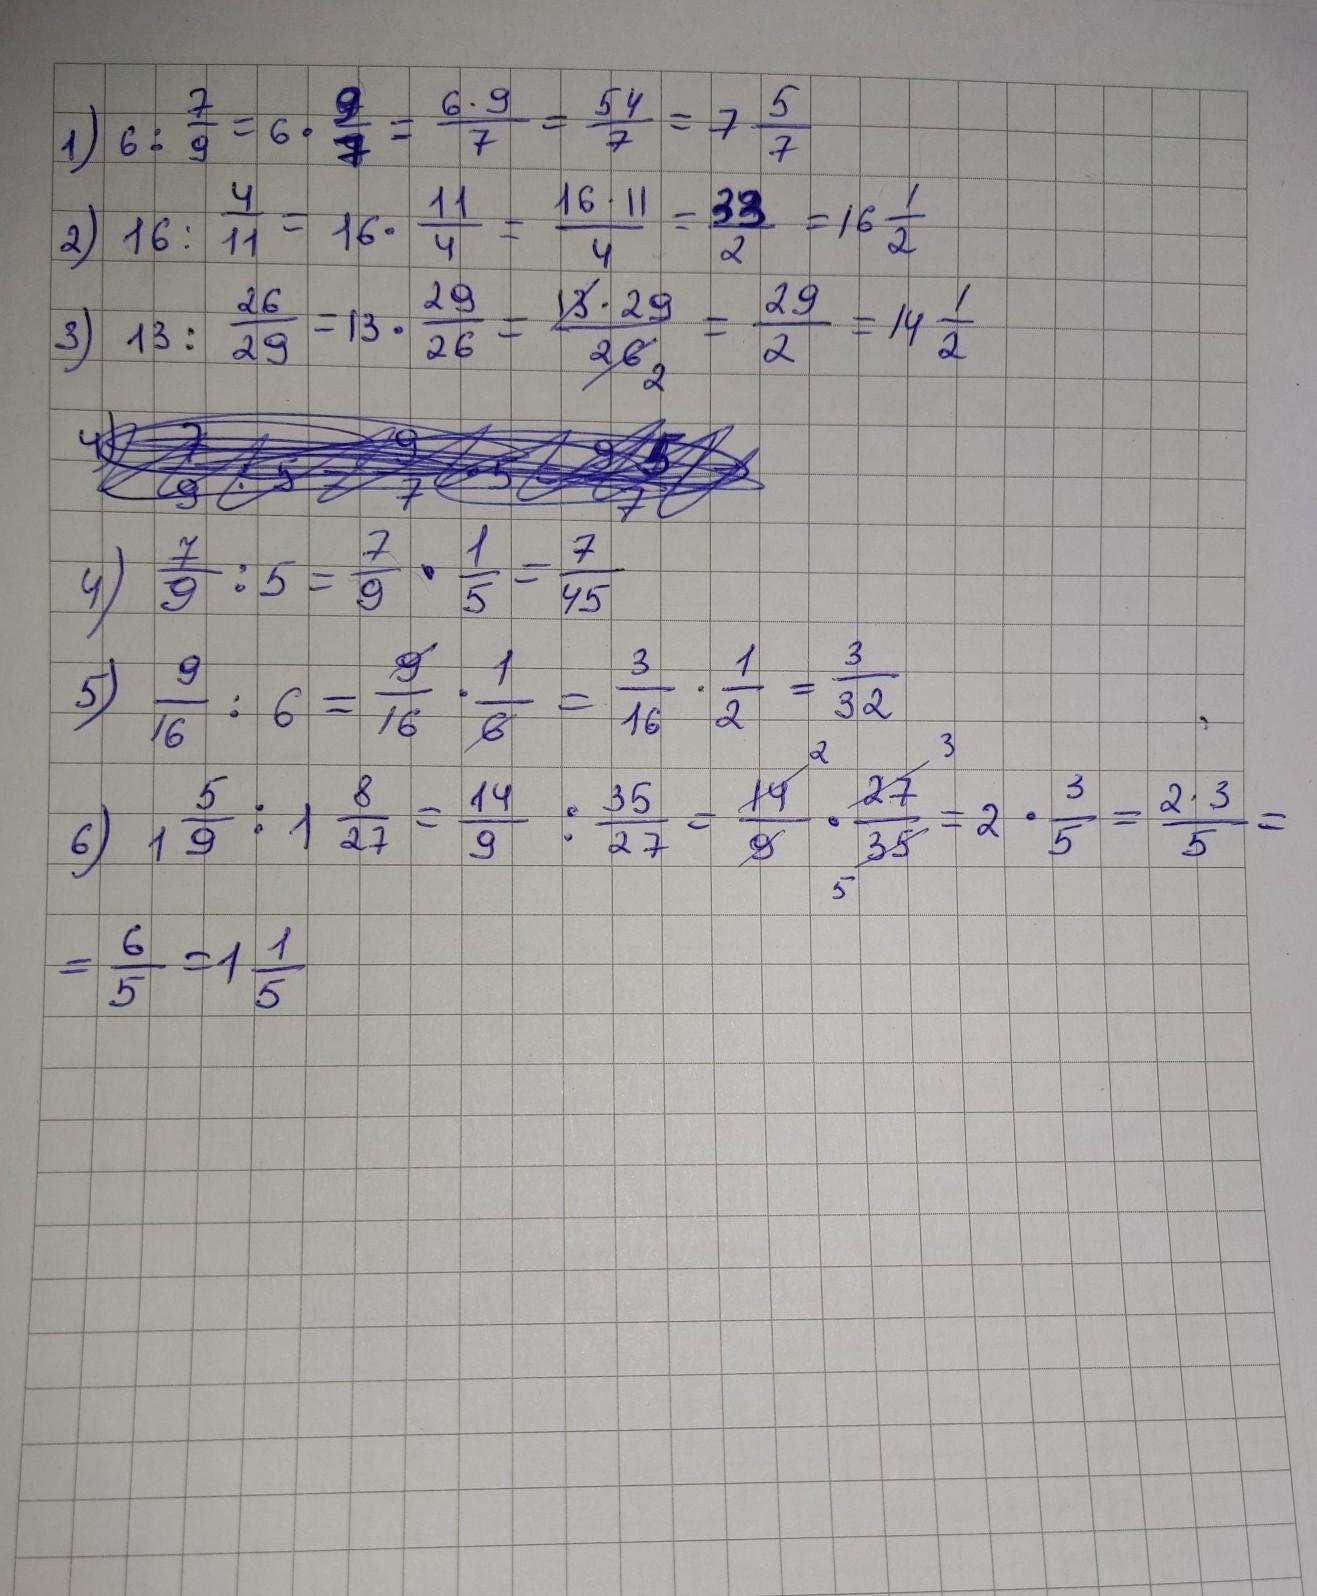 1) 6 : 7/9 = 6 · 9/7 = 6·9/7 = 54/7 = 7 5/7
2) 16 : 4/11 = 16 · 11/4 = 16·11/4 = 33/2 = 16 1/2
3) 13 : 26/29 = 13 · 29/26 = 13·29/26 2 = 29/2 = 14 1/2
4) 7/9 : 5 = 7/9 · 1/5 = 7/45
5) 9/16 : 6 = 9/16 · 1/6 = 3/16 · 1/2 = 3/32
6) 1 5/9 : 1 8/27 = 14/9 : 35/27 = 14 2/9 · 27 3/35 5 = 2 · 3/5 = 2·3/5 =
= 6/5 = 1 1/5